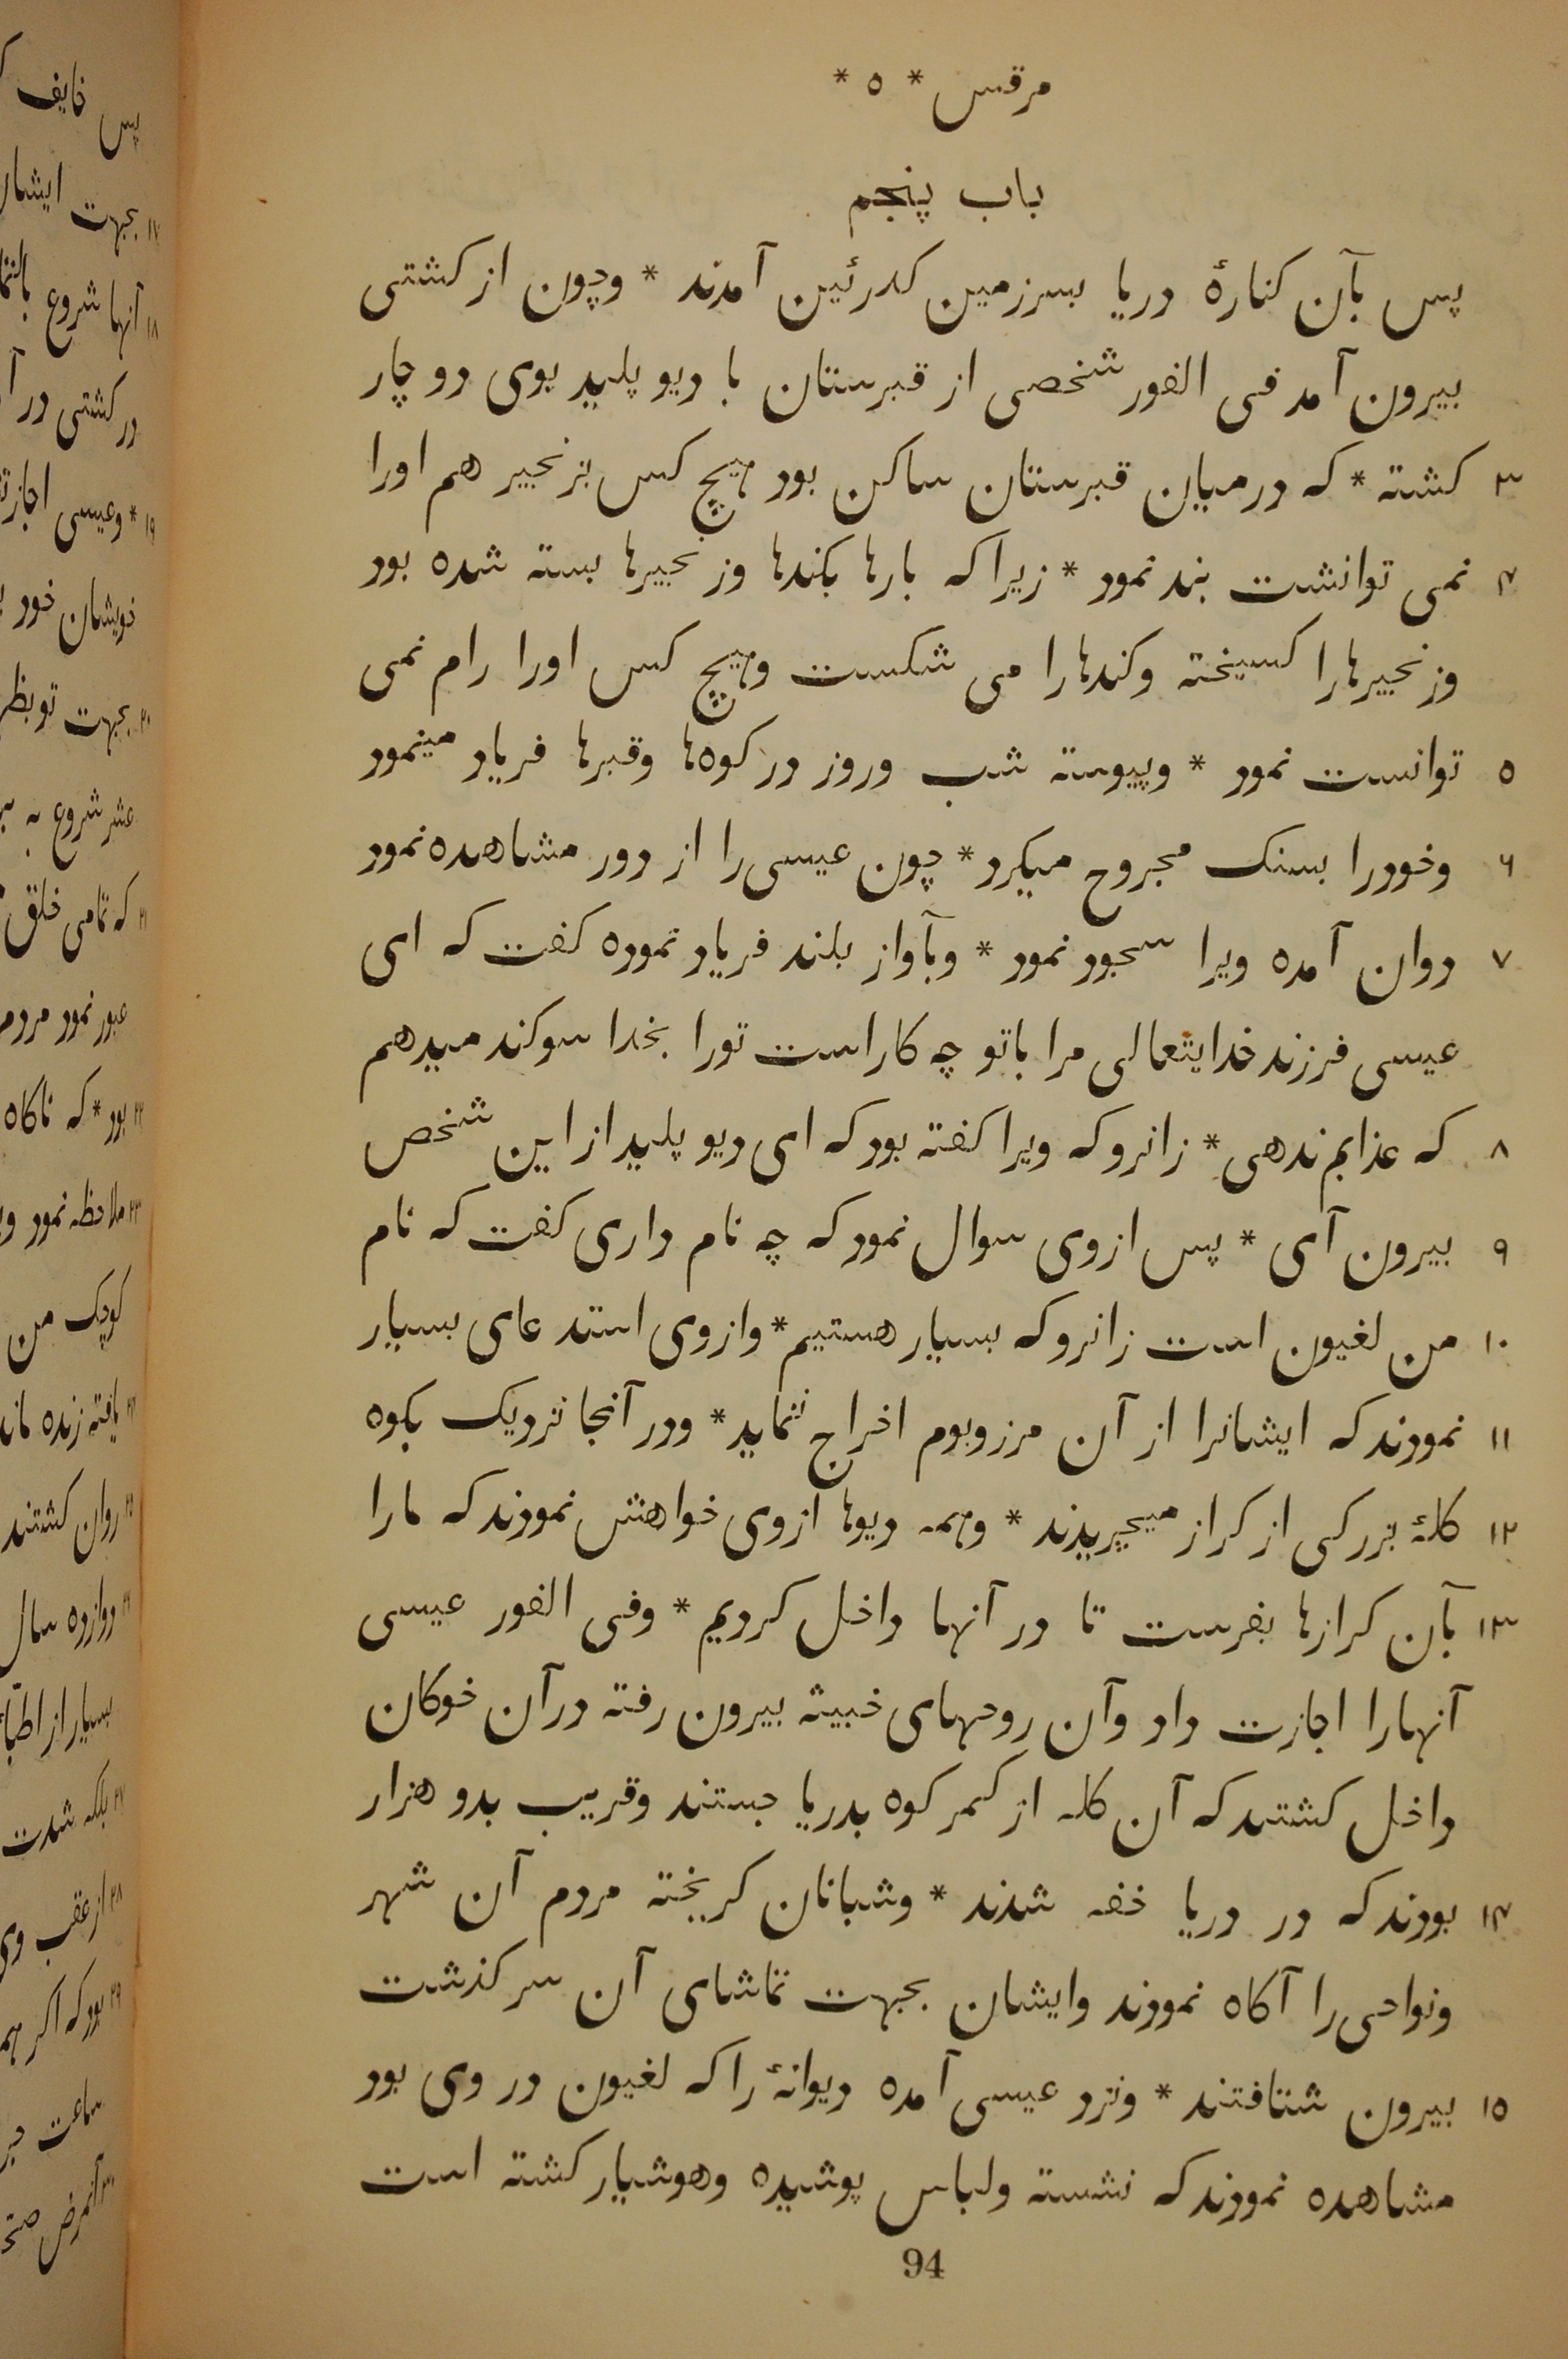 مرقس * ٥ *
باب پنجم
پس بآن کنارهٔ دریا بسرزمین کدرئین آمدند * وچون از کشتی
بیرون آمد فی الفور شخصی از قبرستان با دیو پلید بوی دو چار
٣ کشته * که درمیان قبرستان ساکن بود هیچ کس بزنجیر هم اورا
۴ نمی توانشت بند نمود * زیرا که بارها بکندها وزنجیرها بسته شده بود
وزنجیرهارا کسیخته وکندهارا می شکست وهیچ کس اورا رام نمی
٥ توانست نمود * وپیوسته شب وروز در کوه‌ها وقبرها فریاد مینمود
۶ وخودرا بسنک مجروح میکرد * چون عیسی را از دور مشاهده نمود
٧ دوان آمده ویرا سجود نمود * وبآواز بلند فریاد نموده کفت که ای
عیسی فرزند خدایتعالی مرا باتو چه کاراست تورا بخدا سوکند میدهم
٨ که عذابم ندهی * زانروکه ویرا کفته بود که ای دیو پلید از این شخص
٩ بیرون آی * پس ازوی سوال نمود که چه نام داری کفت که نام
١٠ من لغیون است زانروکه بسیار هستیم * وازوی استد عای بسیار
١١ نمودند که ایشانرا از آن مرزوبوم اخراج ننماید * ودر آنجا نزدیک بکوه
١٢ کلهٔ بزرکی از کراز میچریدند * وهمه دیوها ازوی خواهش نمودند که مارا
١٣ بآن کرازها بفرست تا در آنها داخل کردیم * وفی الفور عیسی
آنهارا اجازت داد وآن روحهای خبیثه بیرون رفته درآن خوکان
داخل کشتند که آن کله از کمر کوه بدریا جستند وقریب بدو هزار
١۴ بودند که در دریا خفه شدند * وشبانان کریخته مردم آن شهر
ونواحی را آکاه نمودند وایشان بجهت تماشای آن سر کذشت
١٥ بیرون شتافتند * ونزد عیسی آمده دیوانهٔ را که لغیون در وی بود
مشاهده نمودند که نشسته ولباس پوشیده وهوشیار کشته است
94